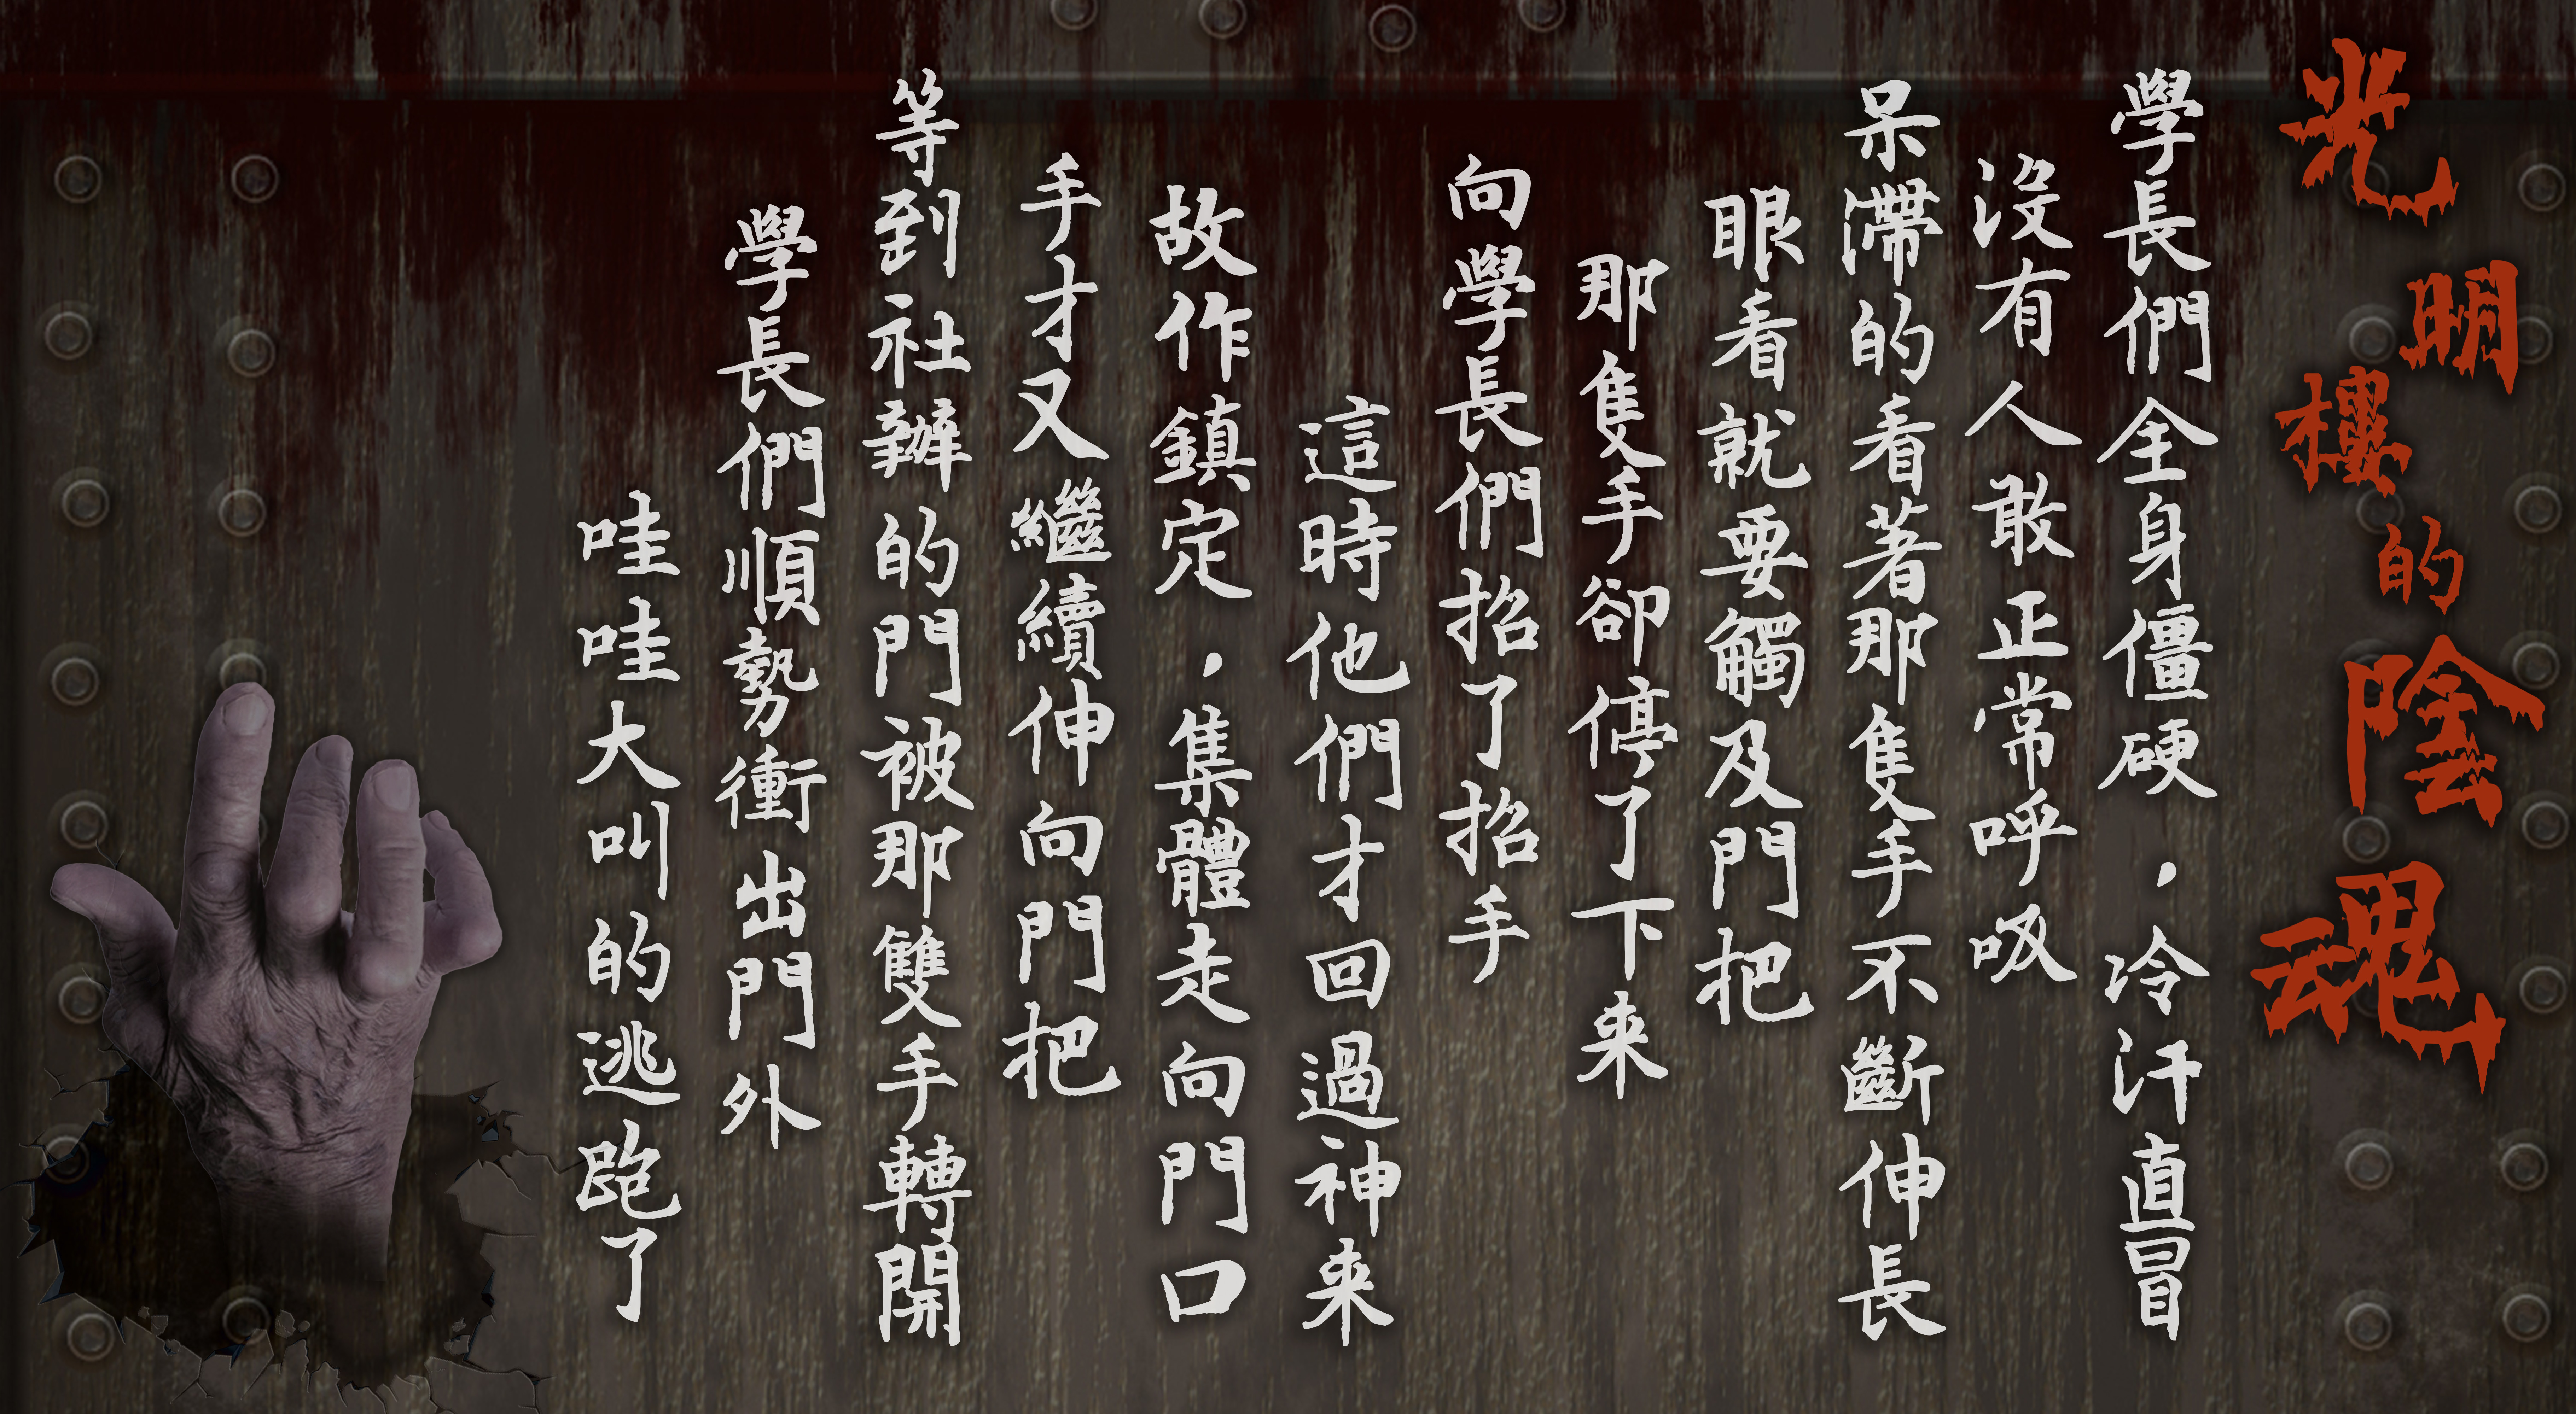 光明樓的陰魂
學長們全身僵硬，冷汗直冒
沒有人敢正常呼吸
呆滯的看著那隻手不斷伸長
眼看就要觸及門把
那隻手卻停了下來
向學長們招了招手
這時他們才回過神來
故作鎮定，集體走向門口
手才又繼續伸向門把
等到社辦的門被那雙手轉開
學長們順勢衝出門外
哇哇大叫的逃跑了